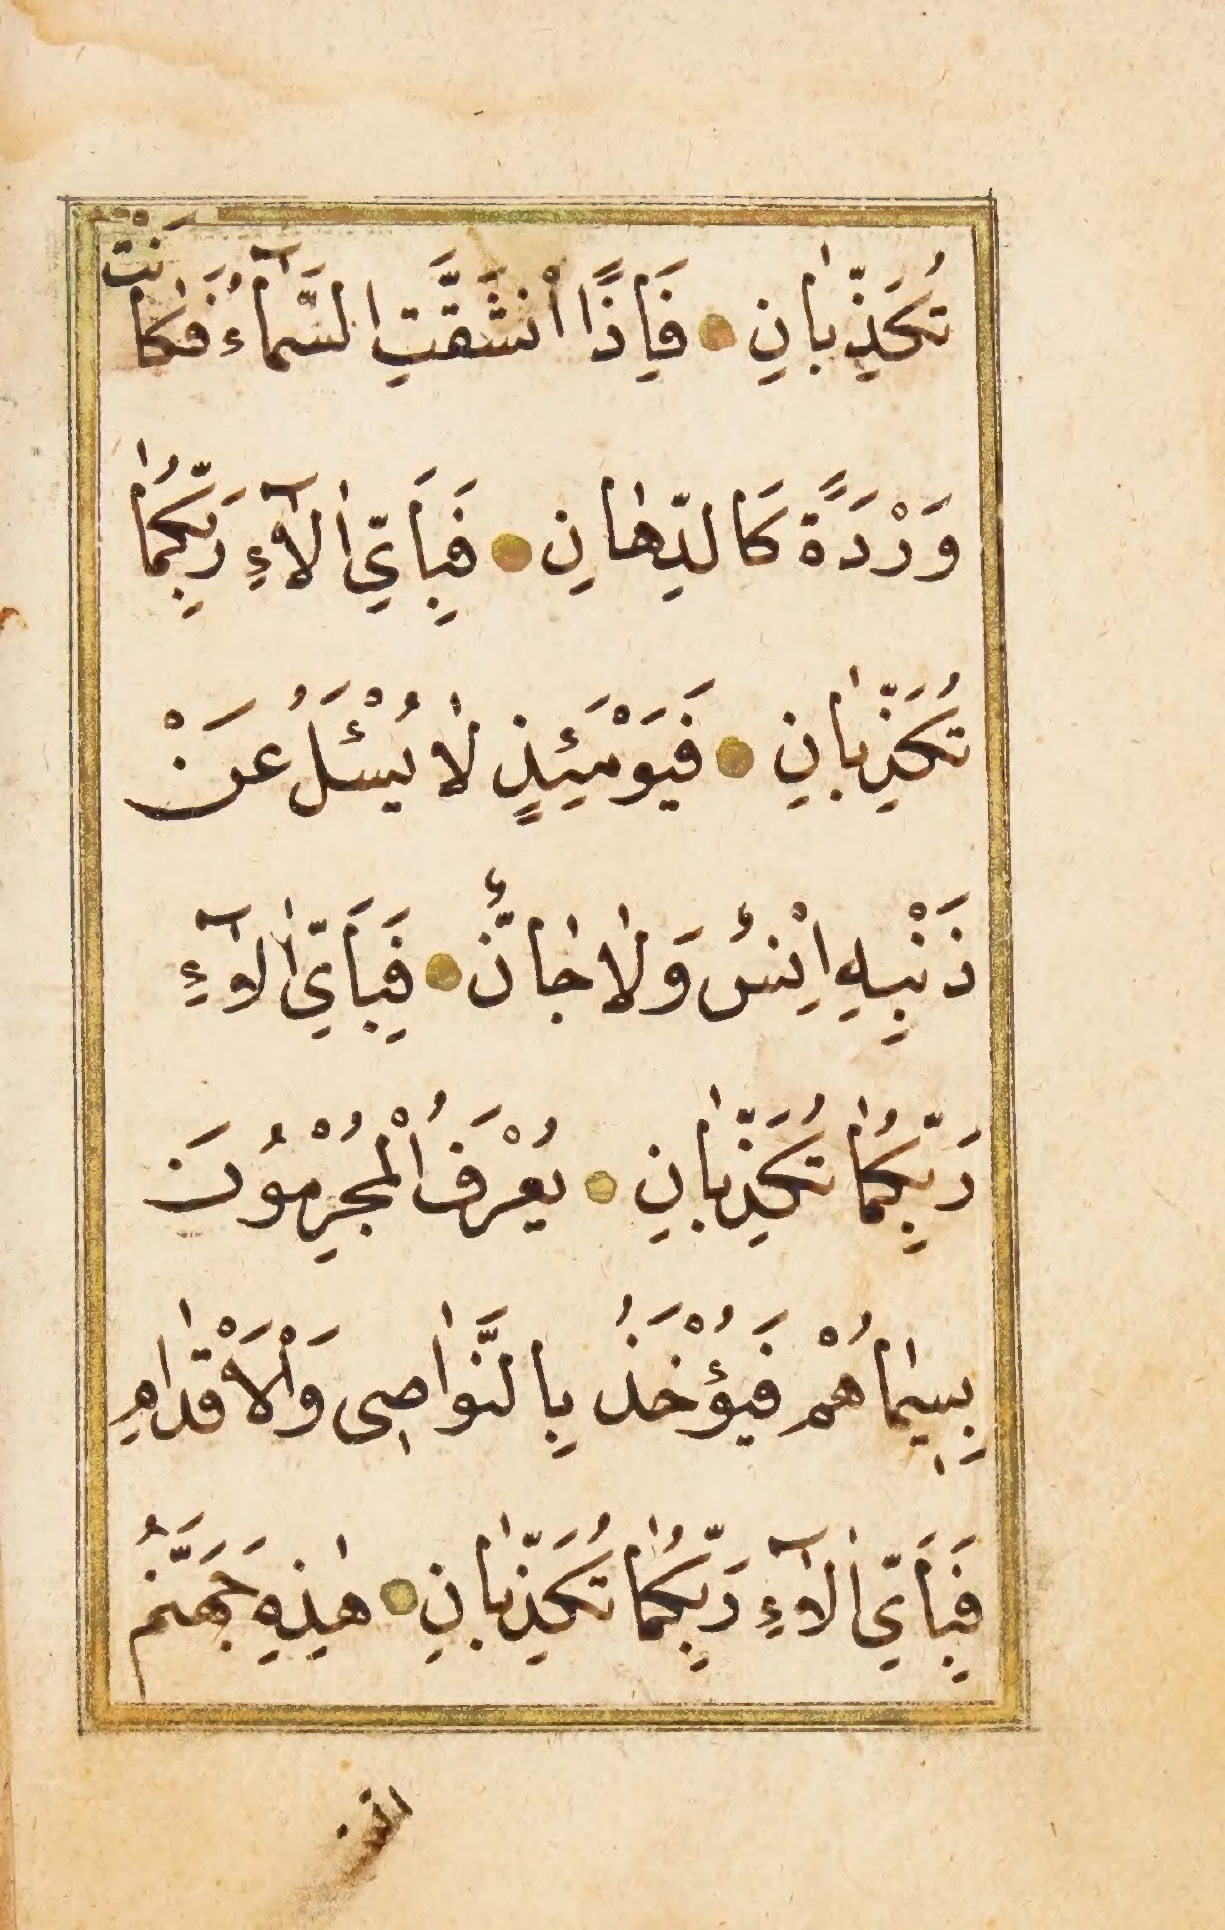 تُكَذِّبٰانِ ۝ فَاِذَا انْشَقَّتِ السَّمَٓاءُ فَكٰانَتْ
وَرْدَةً كَالدِّهٰانِ ۝ فَبِاَيِّ اٰلَٓاءِ رَبِّكُمٰا
تُكَذِّبٰانِ ۝ فَيَوْمَئِذٍ لٰا يُسْئَلُ عَنْ
ذَنْبِهِ اِنْسٌ وَلٰا جٰانٌّ ۝ فَبِاَيِّ اٰلَٓاءِ
رَبِّكُمٰا تُكَذِّبٰانِ ۝ يُعْرَفُ الْمُجْرِمُونَ
بِسِيمٰاهُمْ فَيُؤْخَذُ بِالنَّوٰاصِي وَالْاَقْدٰامِ
فَبِاَيِّ اٰلَٓاءِ رَبِّكُمٰا تُكَذِّبٰانِ ۝ هٰذِهِ جَهَنَّمُ